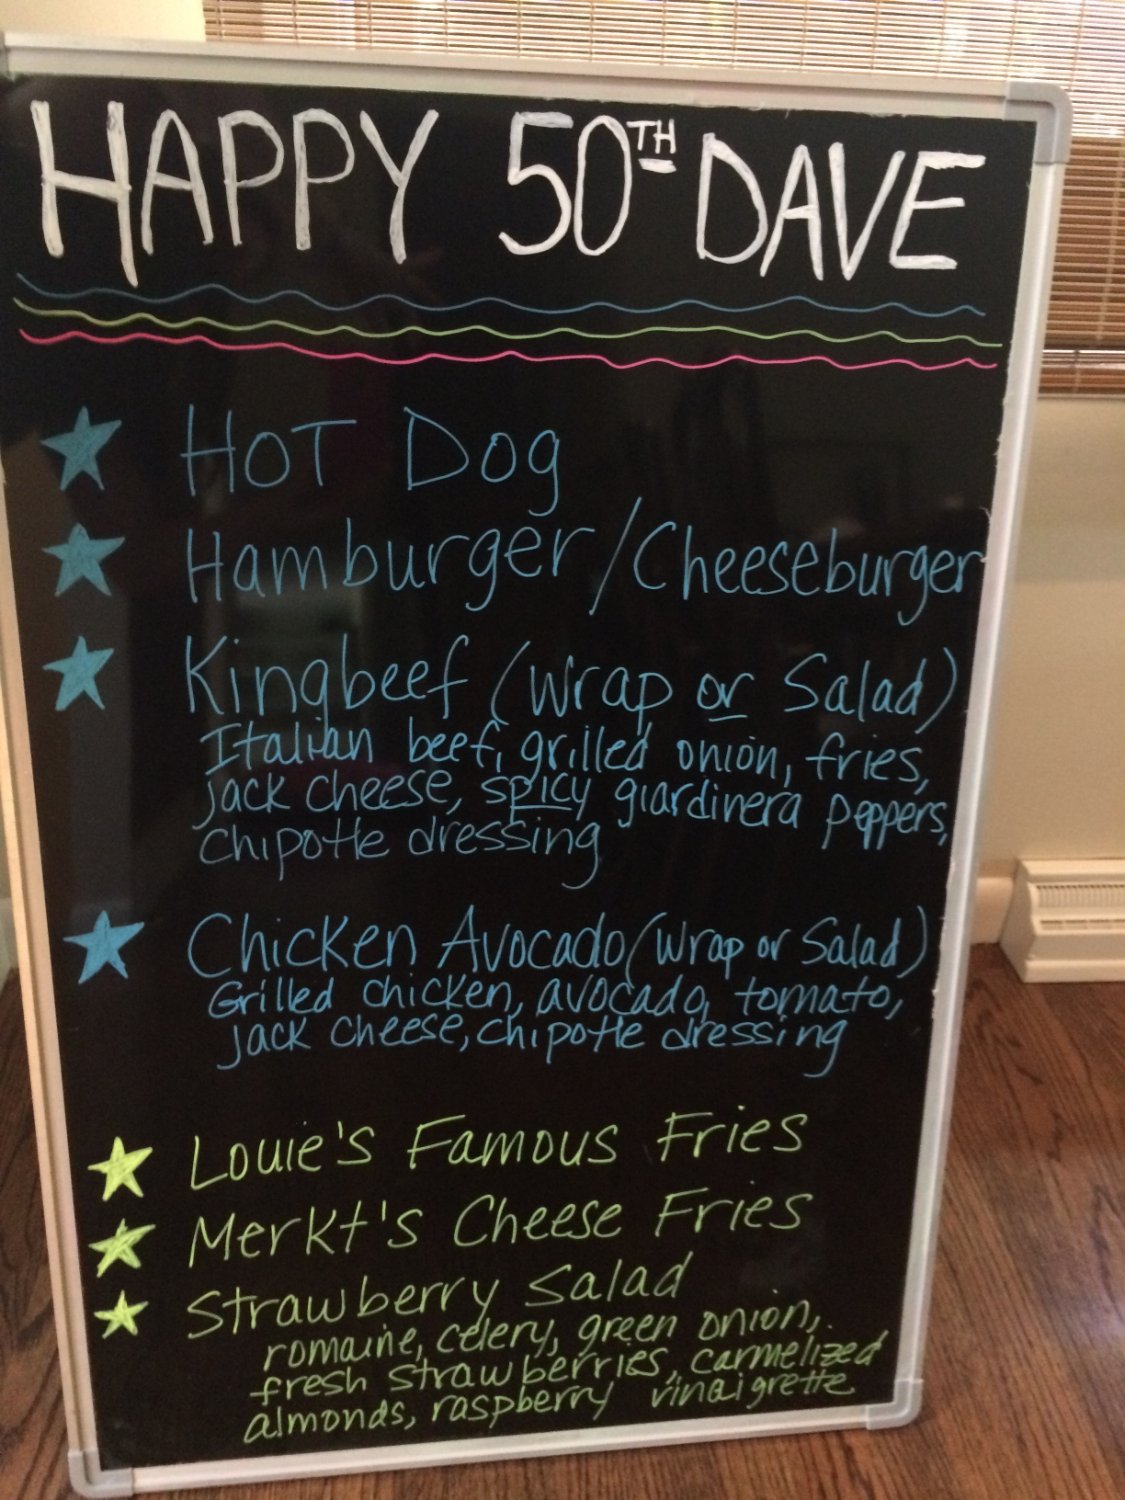 HAPPY 50TH DAVE
HOT DOg
Hamburger/Cheeseburger
Kingbeef (Wrap or Salad)
Italian beef, grilled onion, fries,
jack cheese, spicy giardinera peppers,
chipotle dressing
Chicken Avocado (Wrap or Salad)
Grilled chicken, avocado, tomato,
jack cheese, chipotle dressing
Louie's Famous Fries
Merkt's Cheese Fries
Strawberry Salad
romaine, celery, green onion,
fresh strawberries, carmelized
almonds, raspberry vinaigrette